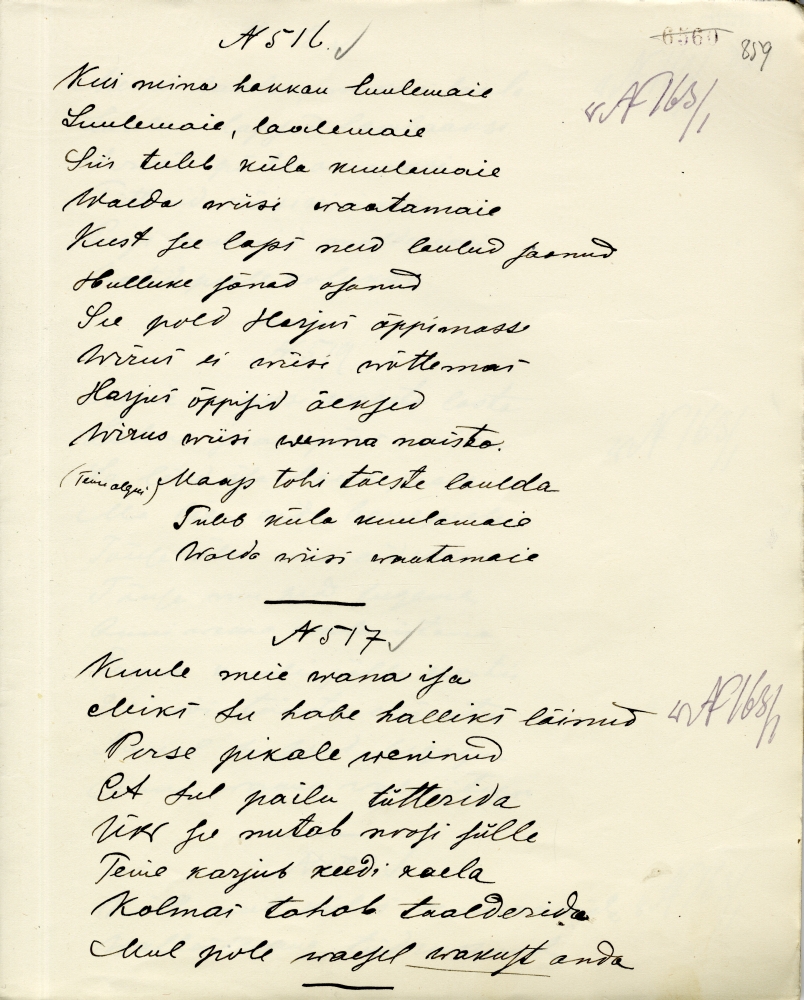 N 516.
6560
859
Kui mina hakkan luulemaie
Luulemaie, laalemaie
Siis tuleb küla kuulemaie
Waeda wiisi waatamaie
Kust see laps neid laulud saanud
Hulluke sõnad osanud
See pold Harjus õppimasse
Wirus ei wiisi wõttemas
Harjus õppisid õeksed
Wirus wiisi wenna naiste.
(Teine algus) Maas tohi tõeste laulda
Tuleb küla kuulamaie
Waeda wiisi waatamaie
N 517
Kuule meie wana isa
Miks su habe halliks läinud
Perse pikale weninud
Et sul pailu tütterida
Üks se nutab roosi sülle
Teine karjub keedi kaela
Kolmas tahab taalderida
Mul pole waesel wakust anda